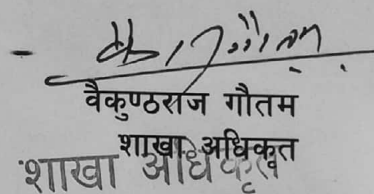 वैकुण्ठराज गौतम
शाखा अधिकृत
शाखा अधिकृत